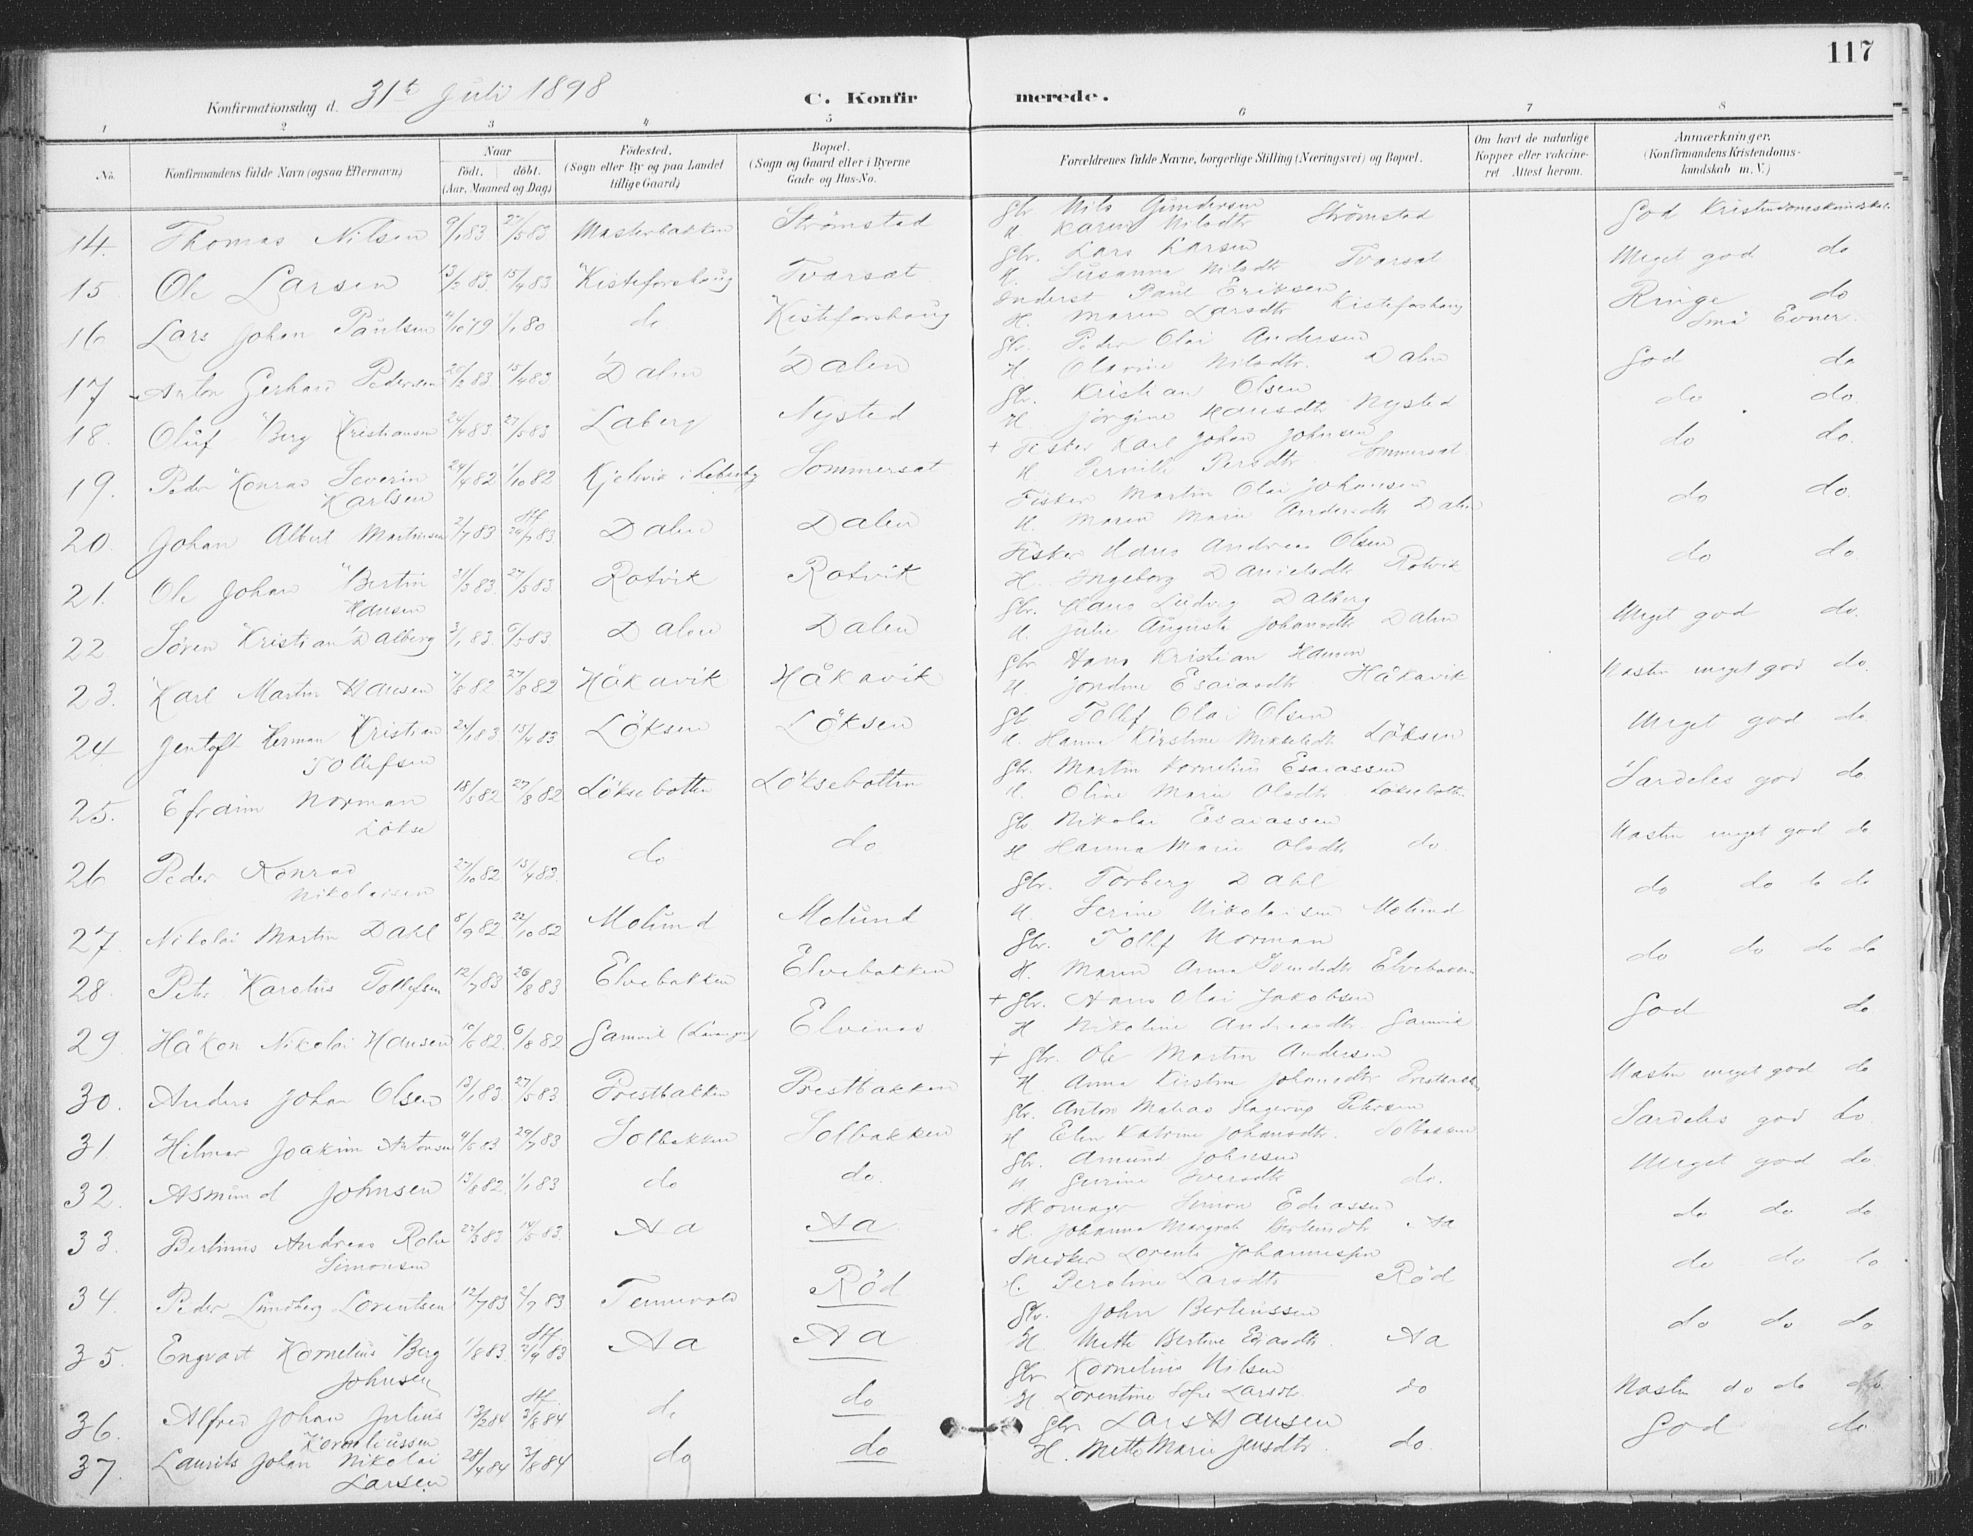 117
Konfirmationsdag d. 31te Juli 1898 C. Konfirmerede.
1 2 3 4 5 6 7 8
No. Konfirmandens fulde Navn (ogsaa Efternavn) Naar født. døbt. (Aar, Maaned og Dag) Födested. (Sogn eller By og paa Landet tillige Gaard) Bopæl. (Sogn og Gaard eller i Byerne Gade og Hus-No. Forældrenes fulde Navne, borgerlige Stilling (Næringsvei) og Bopæl. Om havt de naturlige Kopper eller vakcineret Attest herom. Anmærkninger. (Konfirmandens Kristendomskundskab m. V.)
14. Thomas Nilsen 9/1 83 27/5 83 Masterbakken Strømsted Gbr Nils Gundersen God Kristendomskundskab
H Karen Nilsdtr Strømsted
15 Ole Larsen 13/2 83. 15/4 83 Kisteforshaug Tvarsat Gbr. Lars Larsen Meget god do
H. Susanna Nilsdtr Tvarsat
16 Lars Johan Paulsen 11/10 79 1/1 80 do Kisteforshaug Inderst Paul Eriksen Ringe do
H. Maren Larsdtr Kisteforshaug Små Evner.
17 Anton Gerhard Pedersen 20/2 83. 15/4 83 Dalen Dalen Gbr. Peder Olai Andersen God do
H Olavine Nilsdtr. Dalen
18. Oluf Berg Kristiansen 24/4 83. 27/5 83 Laberg Nysted Gbr. Kristian Olsen do do.
H Jørgine Hansdtr Nysted
19. Peder Konrad Severin 24/4 82 1/10 82 Kjelvik i Lebesby Sommersat + Fisker Karl Johan Johnsen do do.
Karlsen H. Pernille Persdtr. Sommersat
20. Johan Albert Martinsen 2/7 83 Stf. 26/7 83 Dalen Dalen Fisker Martin Olai Johansen do do.
H. Maren Marie Andersdtr Dalen
21. Ole Johan Bertin 31/3 83. 27/5 83. Rotvik Rotvik Fisker Hans Andreas Olsen do do
Hansen H. Ingeborg Danielsdtr Rotvik
22 Søren Kristian Dalberg 3/1 83. 6/5 83 Dalen Dalen Gbr. Hans Ludvig Dalberg Meget god do.
H. Julie Augusta Johansdtr Dalen
23. Karl Martin Hansen 7/8 82 27/8 82 Håkavik Håkavik Gbr Hans Kristian Hansen Næsten meget god do.
H. Jordine Esaiasdtr Håkavik
24. Jentoft Herman Kristian 24/1 83. 15/4 83 Löksen Löksen Gbr Tollf. Olai Olsen Meget god do
Tollefsen H. Hanna Kirstine Mikkelsdtr Löksen
25. Efraim Norman 18/5 82 27/8 82 Löksebotten Löksebotten Gbr. Martin Kornelius Esaiassen Særdeles god do.
Lökse H. Oline Marie Olsdtr. Löksebotten
26 Peder Konrad 27/10 82 15/4 83. do do Gbr Nikolai Esaiassen Næsten meget god do
Nikolaisen H Hanna Marie Olsdtr do.
27. Nikolai Martin Dahl 8/9 82. 22/10 82 Molund Molund Gbr. Torberg Dahl do do do do
H. Serine Nikolaisen Molund
28. Peter Karelius Tollefsen 12/7 83 26/8 83 Elvebakken Elvebakken Gbr. Tollf Norman do do do do
H. Maren Anna Elvebakken
29 Håkon Nikolai Hansen 10/6 82. 6/8 82 Gamvik Elvenes + Gbr. Hans Olai Jakobsen God do
H Nikoline Andreasdtr. Gamvik
30. Anders Johan Olsen 13/1 83 27/5 83 Prestbakken Prestbakken + Gbr. Ole Martin Andersen Næsten meget god do
H. Anna Kirstine Johansdtr Prestbakken
31. Hilmar Joakim Antonsen 4/6 83 29/7 83 Solbakken Solbakken Gbr. Anton Matias Slagerup Petersen Særdeles god do
H Elen Katrine Johansdtr. Solbakken
32. Asmund Johnsen 13/8 82. 1/1 83 do do. Gbr. Amund Johnsen Meget god do
H Gurine Iversdtr do.
33. Bertinus Andreas 22/3 83 14/5 83. Aa Aa Skomager Simon Ediassen do do do
Simonsen H. Johanna Margrete Bertinsdtr Aa
34. Peder Lundberg Lorentsen 12/7 83 2/9 83 Tennevold Rød Snedker Lorents Johannesen do do do
H. Peroline Larsdtr Rød
35. Engvart Kornelius Berg 1/8 83 Stf. 2/9 83 Aa Aa Gbr. John Bertinussen do do do
Johnsen H. Mette Bertine Esaiasdtr. Aa
36. Alfred Johan Julius 13/2 84 Stf. 3/8 84 do do Gbr Kornelius Nilsen Næsten do do do.
Korneliussen H. Lorentine Sofie Larsdtr. do
37. Laurits Johan Nikolai 28/4 84 3/8 84 do do Gbr Lars Hansen God do
Larsen H. Mette Marie Jensdtr. do.